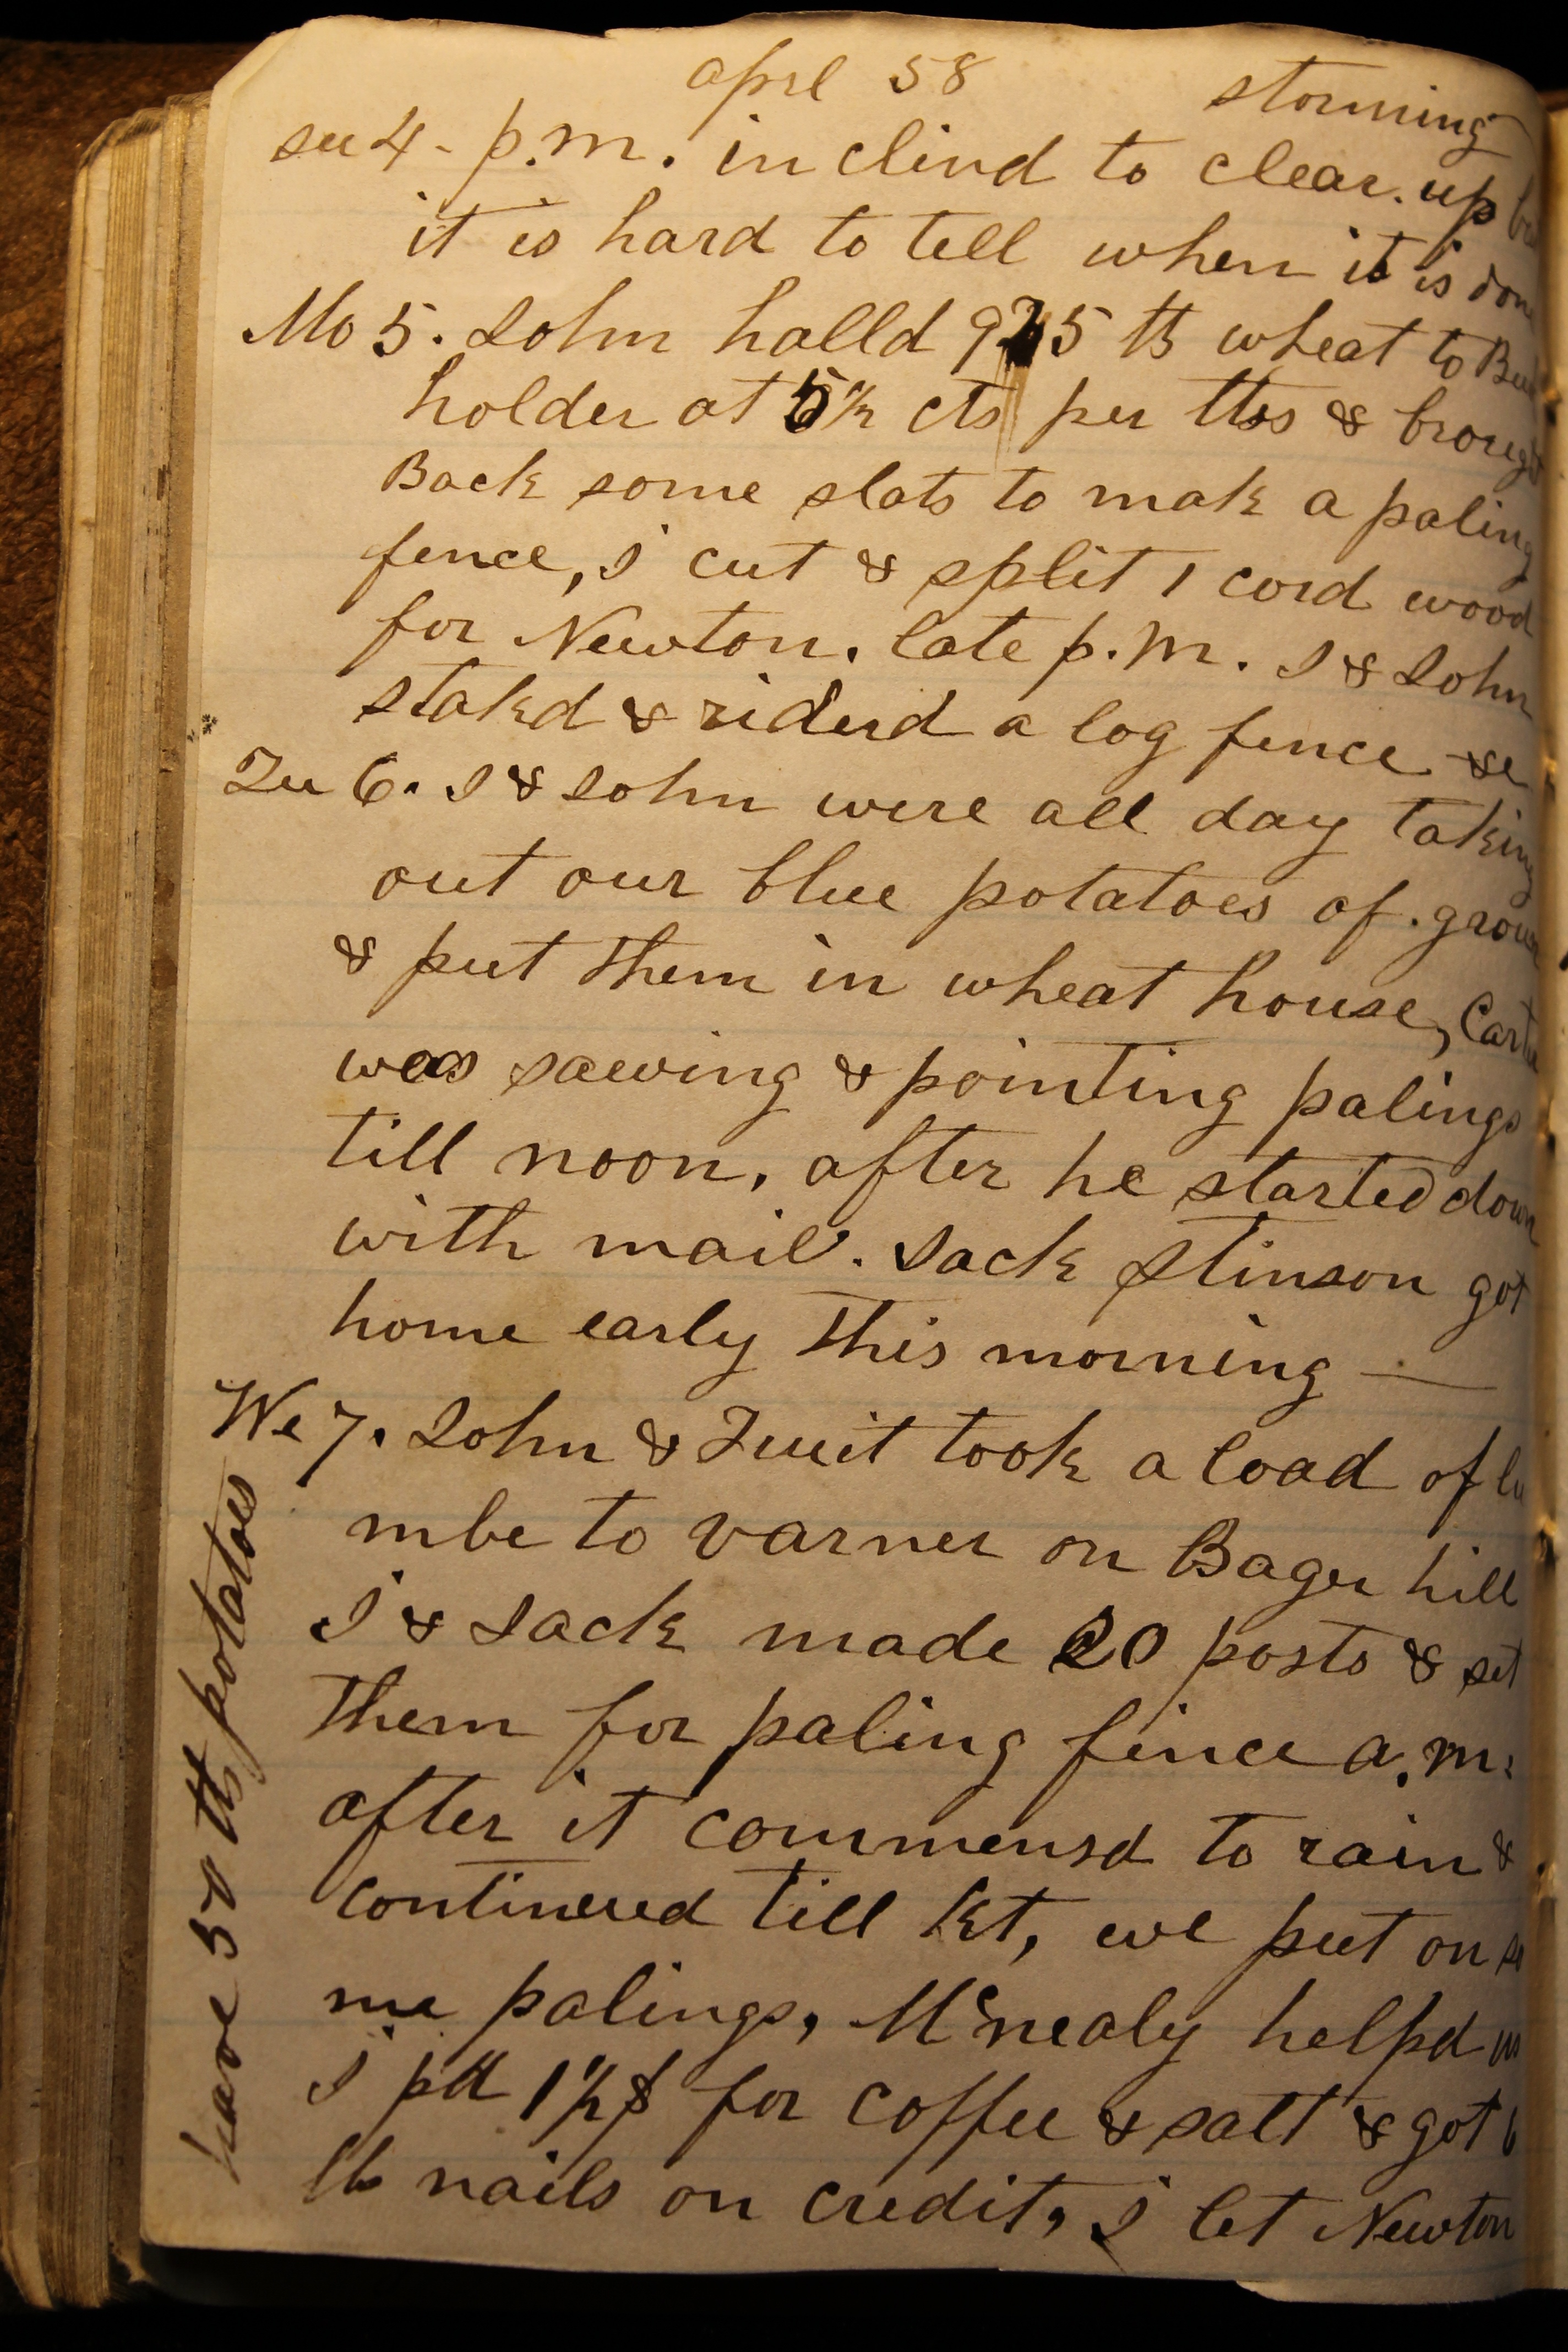 aprl 58
storming
su 4 - p.m. in clind to clear. up
it is hard to tell when it is don
Mo 5. John halld 925 lb wheat to
holder at 5½ cts per lbs & brought
Back some slats to mak a paling
fence, i cut & split 1 cord wood
for Newton. late p.m. I & John
stakd & riderd a log fence &c
Tu 6. I & John were all day taking
out our blue potatoes of . groun
& put them in wheat house,
was sawing & pointing palings
till noon. after he started down
with mail. Jack Stinson got
home early this morning —
We 7. John & Truit took a load of lu
mbe to varner on Bager hill
I & Jack made 20 posts & set
them for paling fince a.m:
after it commensd to rain &
continued till kt, we put on so
me palings, Mcnealy helpd us
I pd 1½ $ for coffee & salt & got
lb nails on credit, I let Newton
have 50 lb potatoes